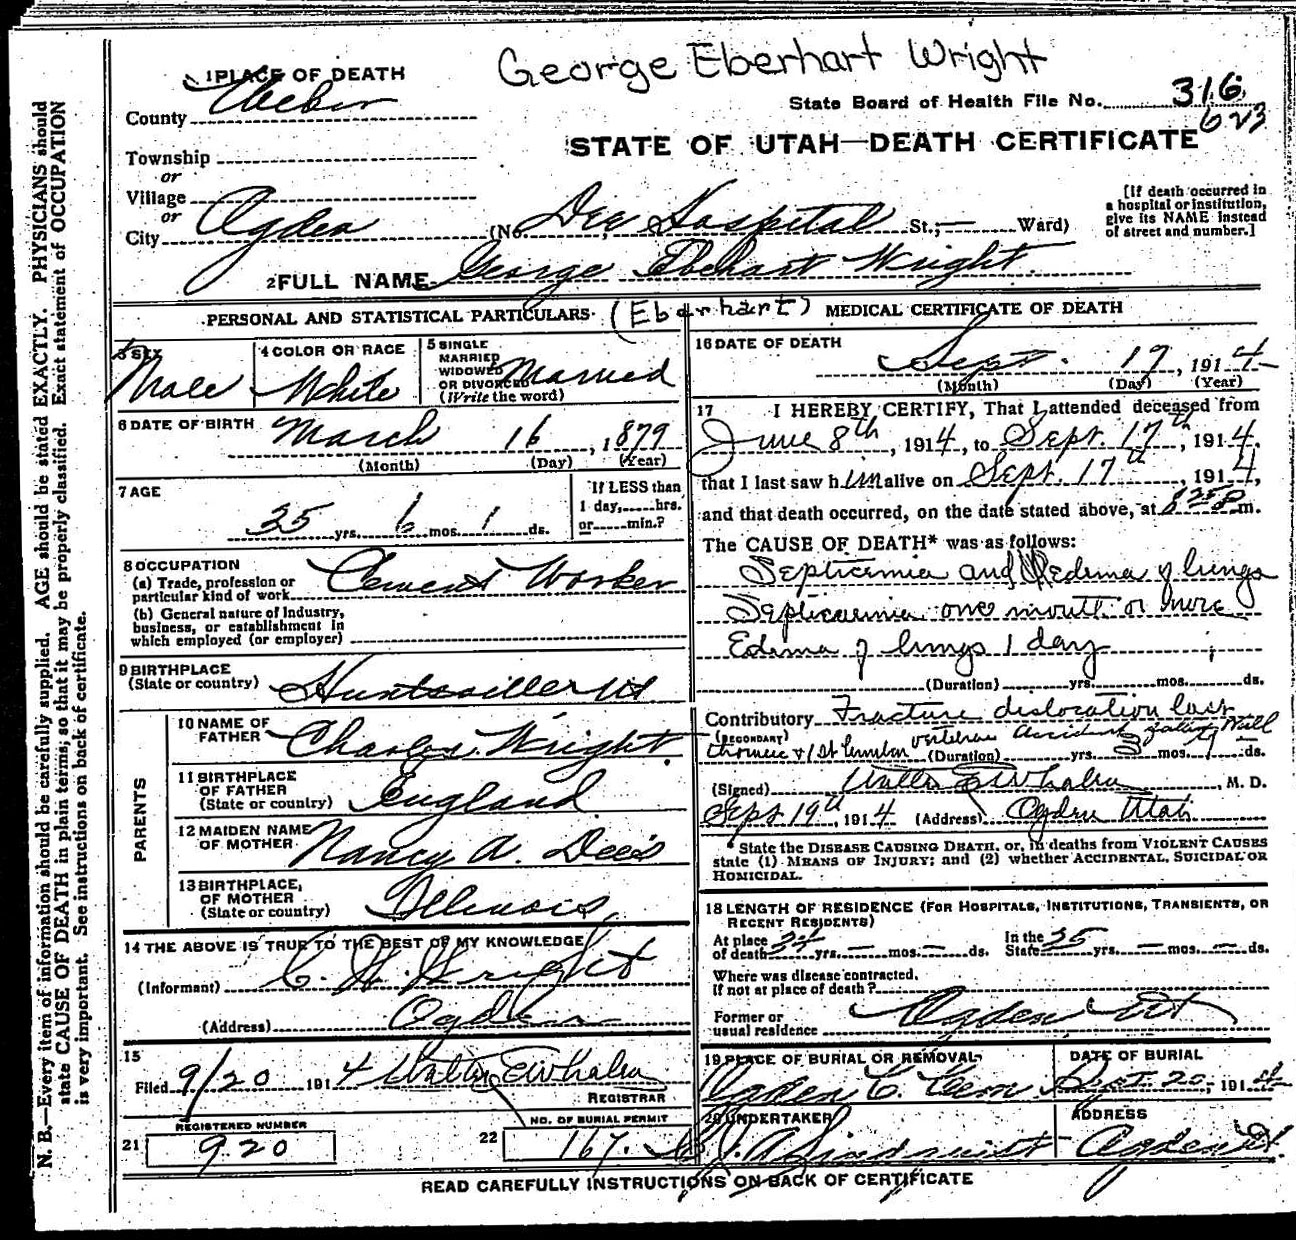 George Eberhart Wright
1 PLACE OF DEATH
County Weber
State Board of Health File No. 316
623
STATE OF UTAH—DEATH CERTIFICATE
Township
or
Village
or
City Ogden (No. Dee Hospital St.; — Ward)
[If death occurred in
a hospital or institution,
give its NAME instead
of street and number.]
2 FULL NAME George Eberhart Wright
(Eberhart)
PERSONAL AND STATISTICAL PARTICULARS
3 SEX Male
4 COLOR OR RACE White
5 SINGLE
MARRIED
WIDOWED
OR DIVORCED Married
(Write the word)
6 DATE OF BIRTH March 16, 1879
(Month) (Day) (Year)
7 AGE 35 yrs. 6 mos. 1 ds.
If LESS than
1 day,.....hrs.
or.....min.?
8 OCCUPATION
(a) Trade, profession or
particular kind of work Cement Worker
(b) General nature of Industry,
business, or establishment in
which employed (or employer)
9 BIRTHPLACE
(State or country) Huntsville Ut
PARENTS
10 NAME OF
FATHER Charles Wright
11 BIRTHPLACE
OF FATHER
(State or country) England
12 MAIDEN NAME
OF MOTHER Nancy A. Dees
13 BIRTHPLACE,
OF MOTHER
(State or country) Illinois
14 THE ABOVE IS TRUE TO THE BEST OF MY KNOWLEDGE
(Informant) C. H. Wright
(Address) Ogden
15
Filed 9/20 1914 Walter E Whalen
REGISTRAR
REGISTERED NUMBER
21 920
NO. OF BURIAL PERMIT
22 167.
MEDICAL CERTIFICATE OF DEATH
16 DATE OF DEATH
Sept. 17, 1914
(Month) (Day) (Year)
17 I HEREBY CERTIFY, That I attended deceased from
June 8th, 1914, to Sept. 17th, 1914,
that I last saw h im alive on Sept. 17th, 1914,
and that death occurred, on the date stated above, at 825 P m.
The CAUSE OF DEATH* was as follows:
Septicemia and Edema of lungs
Septicaemia one month or more
Edema of lungs 1 day
(Duration) yrs. mos. ds.
Contributory Fracture dislocation last
(SECONDARY)
vertebrae Accident falling Wall
(Duration) yrs. 3 mos. 9 ds.
(Signed) Walter E Whalen, M. D.
Sept 19th, 1914 (Address) Ogden Utah
*State the DISEASE CAUSING DEATH, or, in deaths from VIOLENT CAUSES
state (1) MEANS OF INJURY; and (2) whether ACCIDENTAL, SUICIDAL OR
HOMICIDAL.
18 LENGTH OF RESIDENCE (FOR HOSPITALS, INSTITUTIONS, TRANSIENTS, OR
RECENT RESIDENTS)
At place
of death 34 yrs. — mos. — ds.
In the
State 35 yrs. — mos. — ds.
Where was disease contracted,
if not at place of death?
Former or
usual residence Ogden Ut
19 PLACE OF BURIAL OR REMOVAL
Ogden C. Cem
DATE OF BURIAL
Sept. 20, 191
20 UNDERTAKER
J. A. Lindquist
ADDRESS
Ogden Ut.
READ CAREFULLY INSTRUCTIONS ON BACK OF CERTIFICATE
N. B.—Every item of information should be carefully supplied. AGE should be stated EXACTLY. PHYSICIANS should
state CAUSE OF DEATH in plain terms, so that it may be properly classified. Exact statement of OCCUPATION
is very important. See instructions on back of certificate.